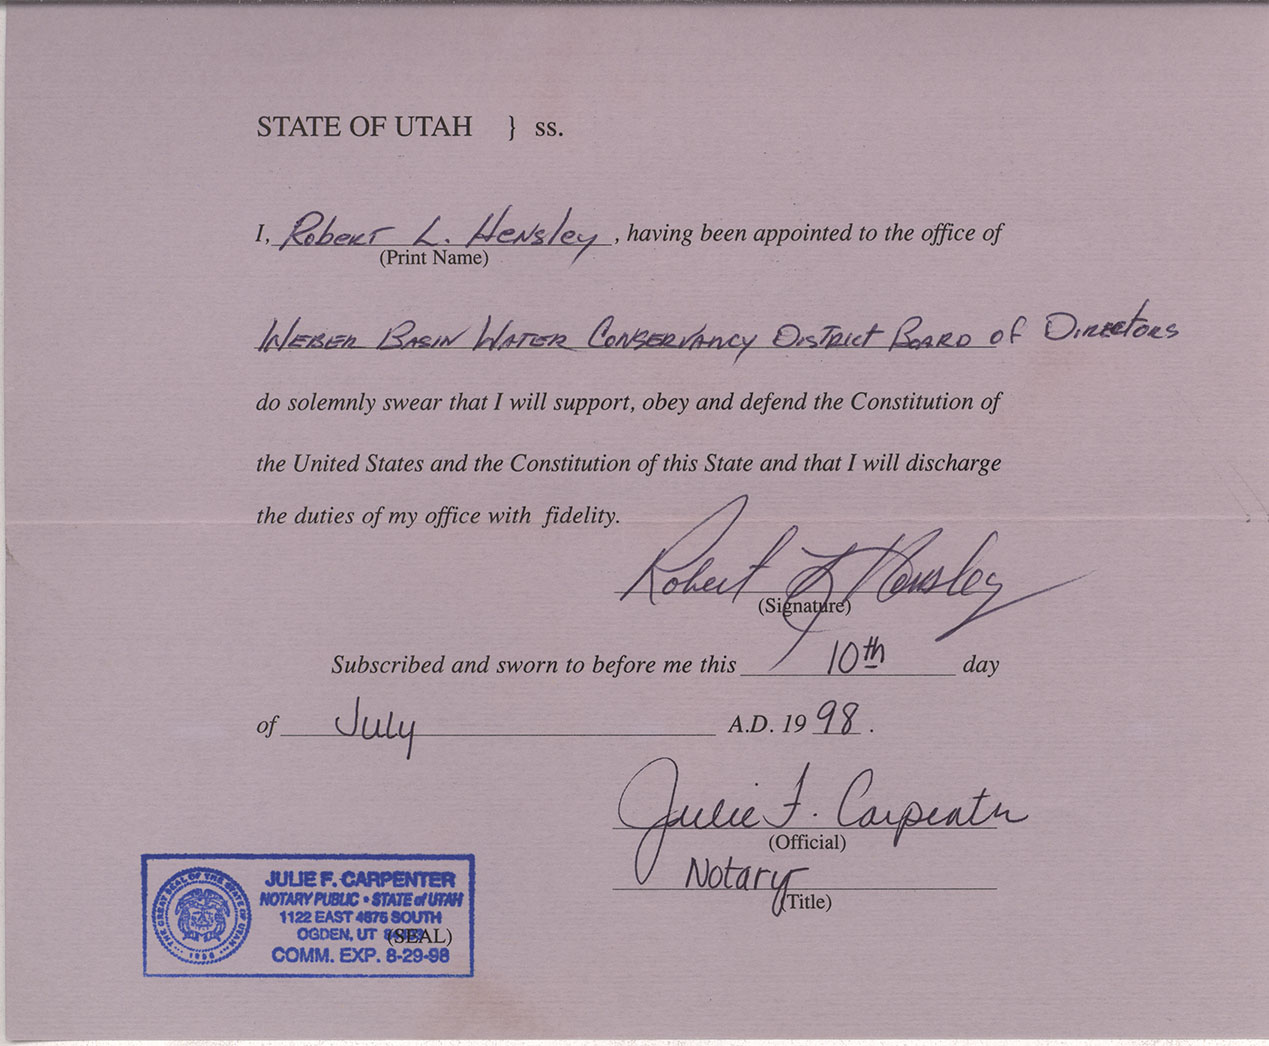 STATE OF UTAH } ss.
I, Robert L. Hensley, having been appointed to the office of
(Print Name)
Weber Basin Water Conservancy District Board of Directors
do solemnly swear that I will support, obey and defend the Constitution of
the United States and the Constitution of this State and that I will discharge
the duties of my office with fidelity.
Robert L Hensley
(Signature)
Subscribed and sworn to before me this 10th day
of July A.D. 1998.
Julie F. Carpenter
(Official)
Notary
(Title)
THE GREAT SEAL OF THE STATE OF UTAH
1896
JULIE F. CARPENTER
NOTARY PUBLIC • STATE of UTAH
1122 EAST 4675 SOUTH
OGDEN, UT
(SEAL)
COMM. EXP. 8-29-98